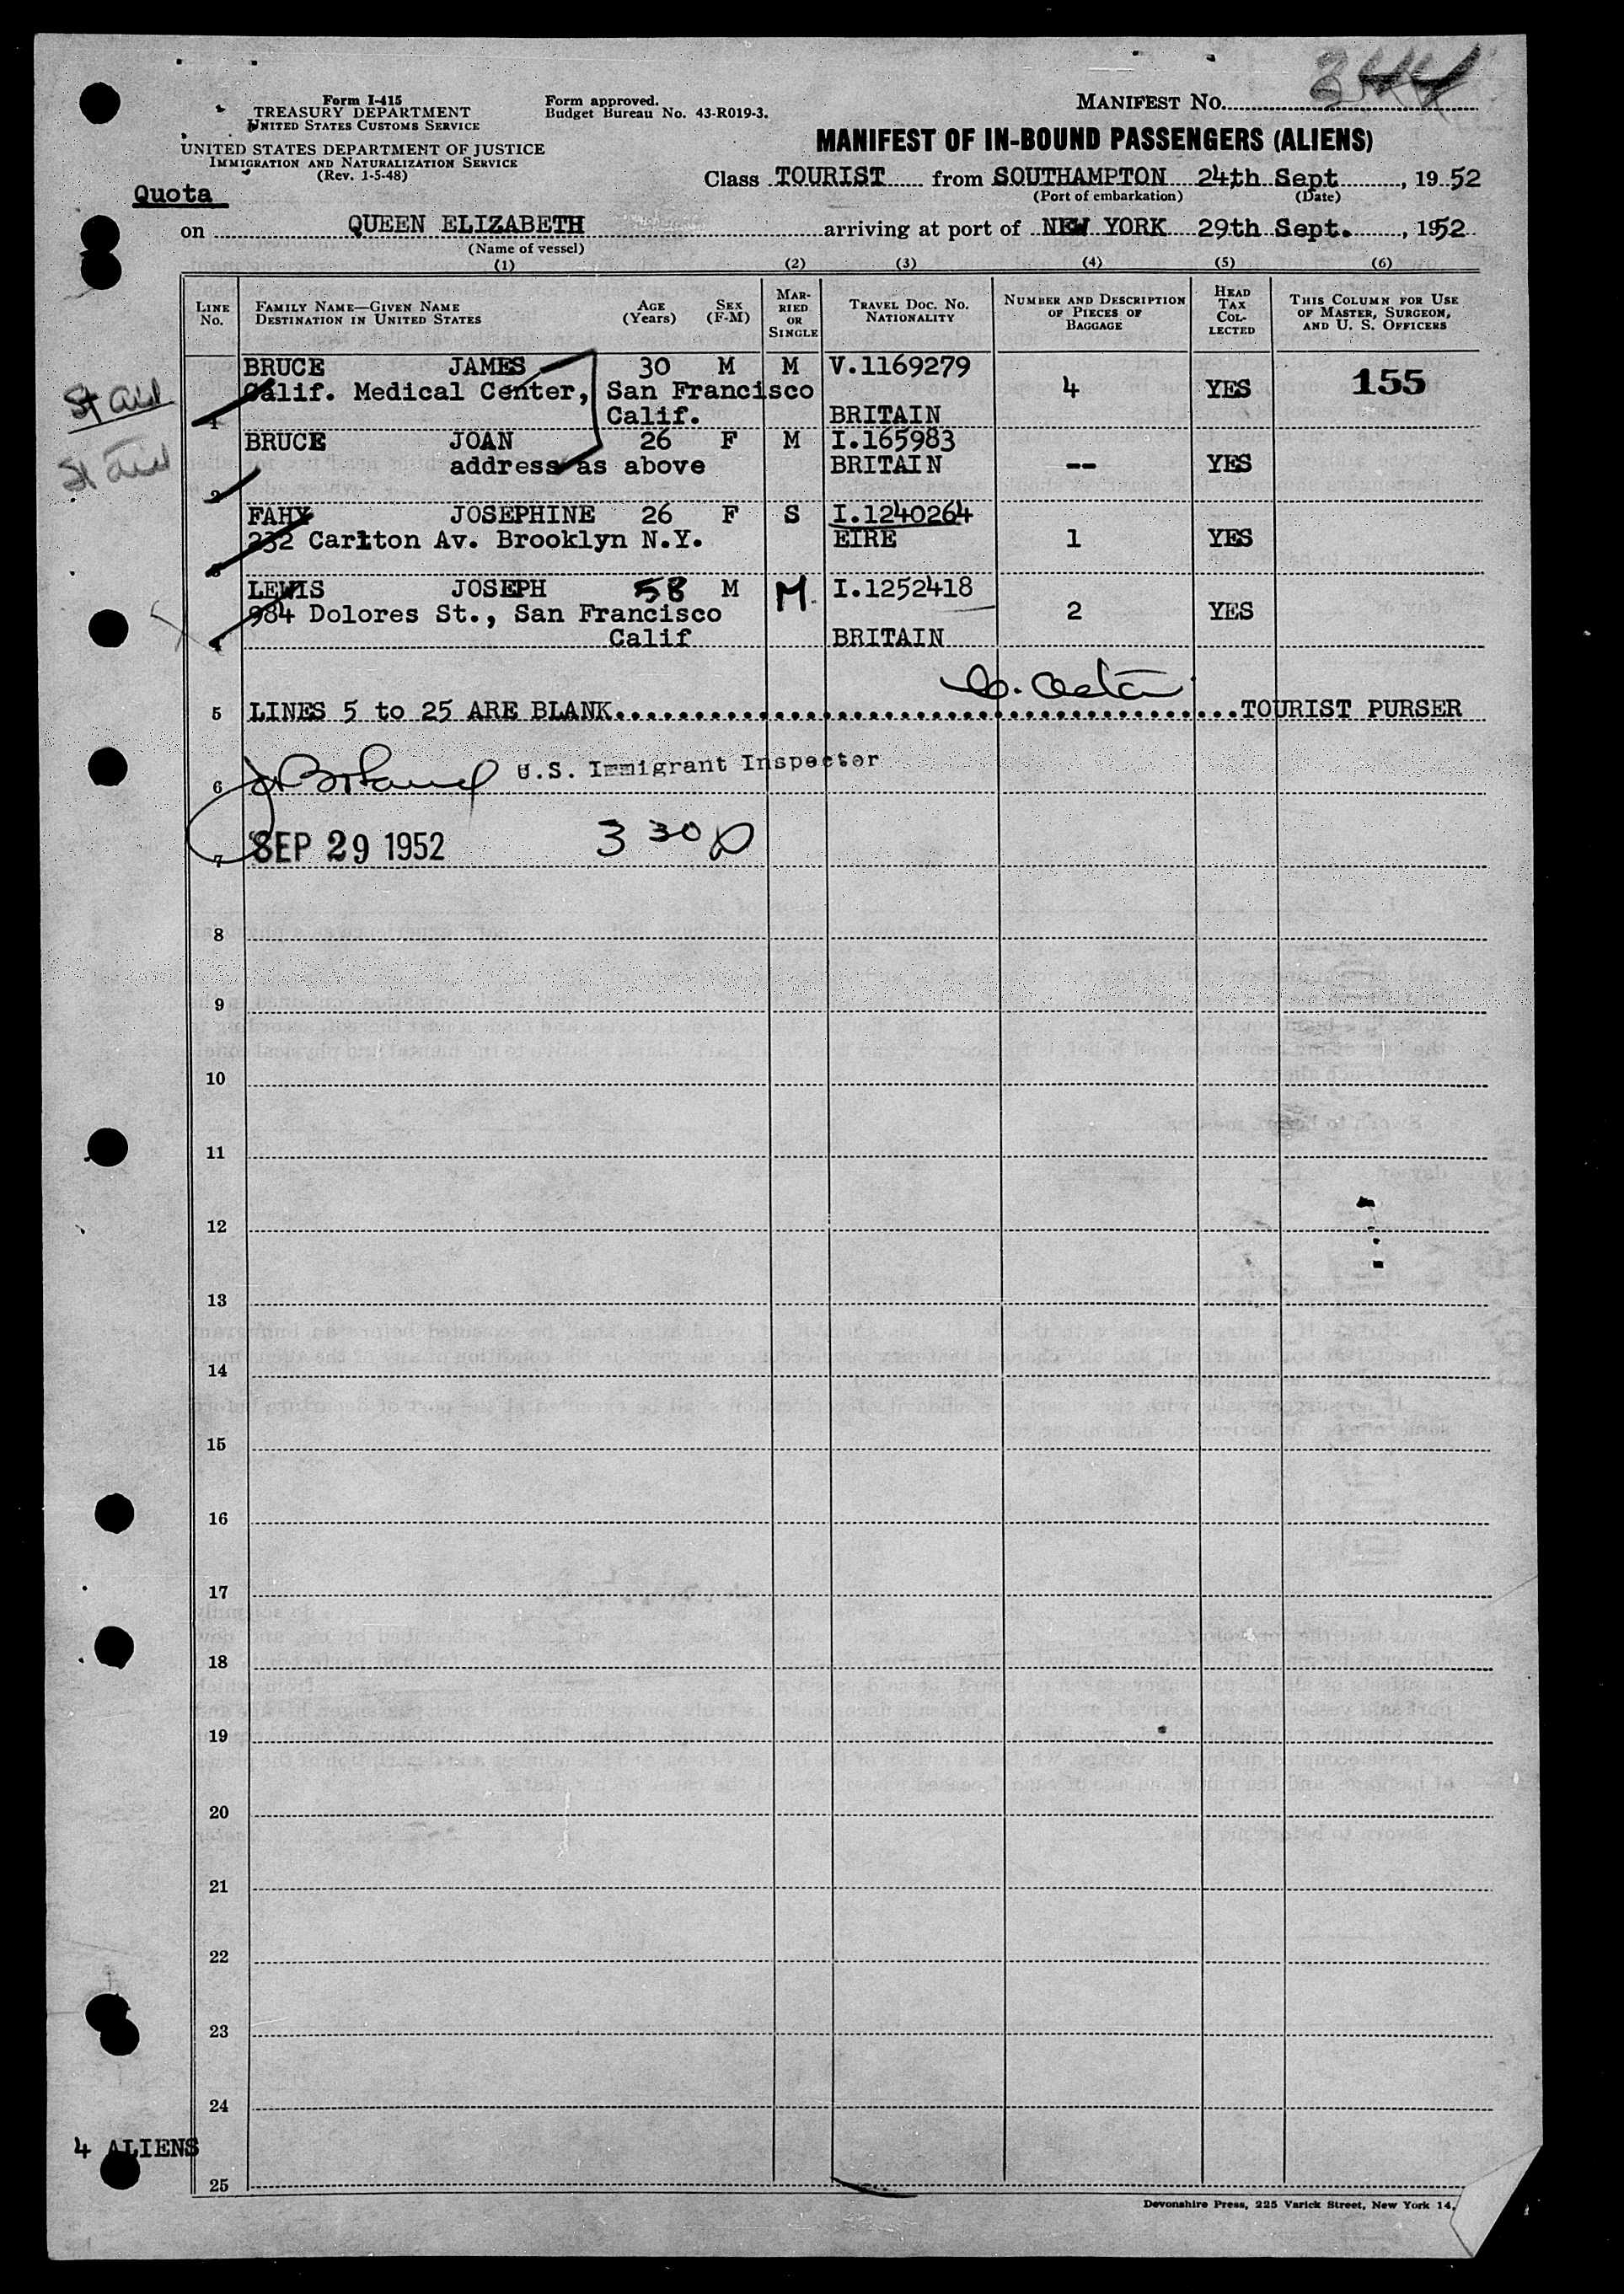 344
Form I-415
TREASURY DEPARTMENT
UNITED STATES CUSTOMS SERVICE
UNITED STATES DEPARTMENT OF JUSTICE
IMMIGRATION AND NATURALIZATION SERVICE
(Rev. 1-5-48)
Form approved.
Budget Bureau No. 43-R019-3.
MANIFEST NO.
MANIFEST OF IN-BOUND PASSENGERS (ALIENS)
Class TOURIST from SOUTHAMPTON 24th Sept, 19 52
(Port of embarkation) (Date)
Quota
on QUEEN ELIZABETH arriving at port of NEW YORK 29th Sept., 1952
(Name of vessel)
(1) (2) (3) (4) (5) (6)
LINE NO. FAMILY NAME—GIVEN NAME DESTINATION IN UNITED STATES AGE (Years) SEX (F-M) MARRIED OR SINGLE TRAVEL DOC. NO. NATIONALITY NUMBER AND DESCRIPTION OF PIECES OF BAGGAGE HEAD TAX COLLECTED THIS COLUMN FOR USE OF MASTER, SURGEON, AND U. S. OFFICERS
BRUCE JAMES 30 M M V.1169279
Calif. Medical Center, San Francisco 4 YES 155
1 Calif. BRITAIN
BRUCE JOAN 26 F M I.165983
address as above BRITAIN -- YES
2
FAHY JOSEPHINE 26 F S I.1240264
232 Carlton Av. Brooklyn N.Y. EIRE 1 YES
3
LEWIS JOSEPH 58 M M I.1252418
984 Dolores St., San Francisco 2 YES
4 Calif BRITAIN
5 LINES 5 to 25 ARE BLANK. TOURIST PURSER
6 U.S. Immigrant Inspector
7 SEP 29 1952 3 30 p
8
9
10
11
12
13
14
15
16
17
18
19
20
21
22
23
24
4 ALIENS
25
Devonshire Press, 225 Varick Street, New York 14,